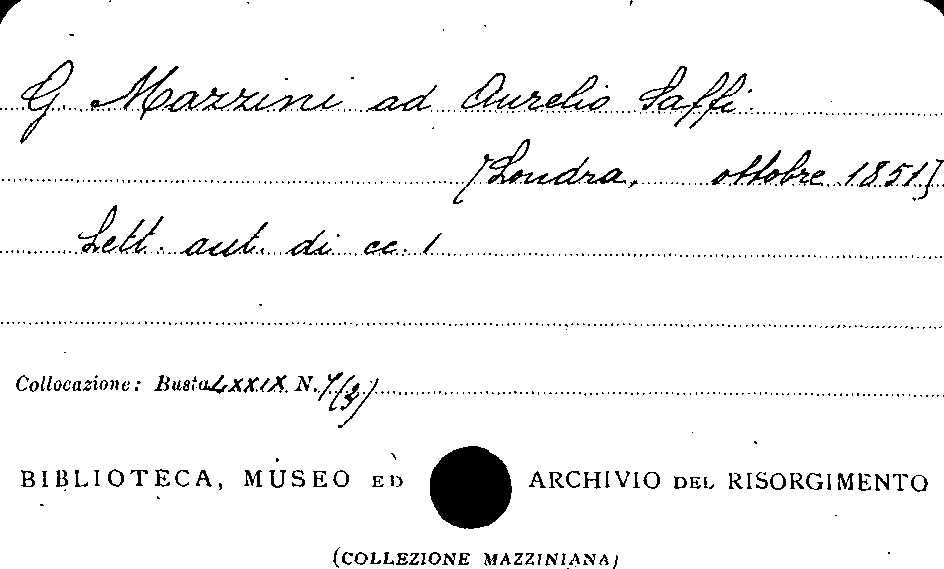 G. Mazzini ad Aurelio Saffi.
[Londra, ottobre 1851]
Lett. aut. di cc. 1
Collocazione: Busta LXXIX N.
BIBLIOTECA, MUSEO ED ARCHIVIO DEL RISORGIMENTO
(COLLEZIONE MAZZINIANA)